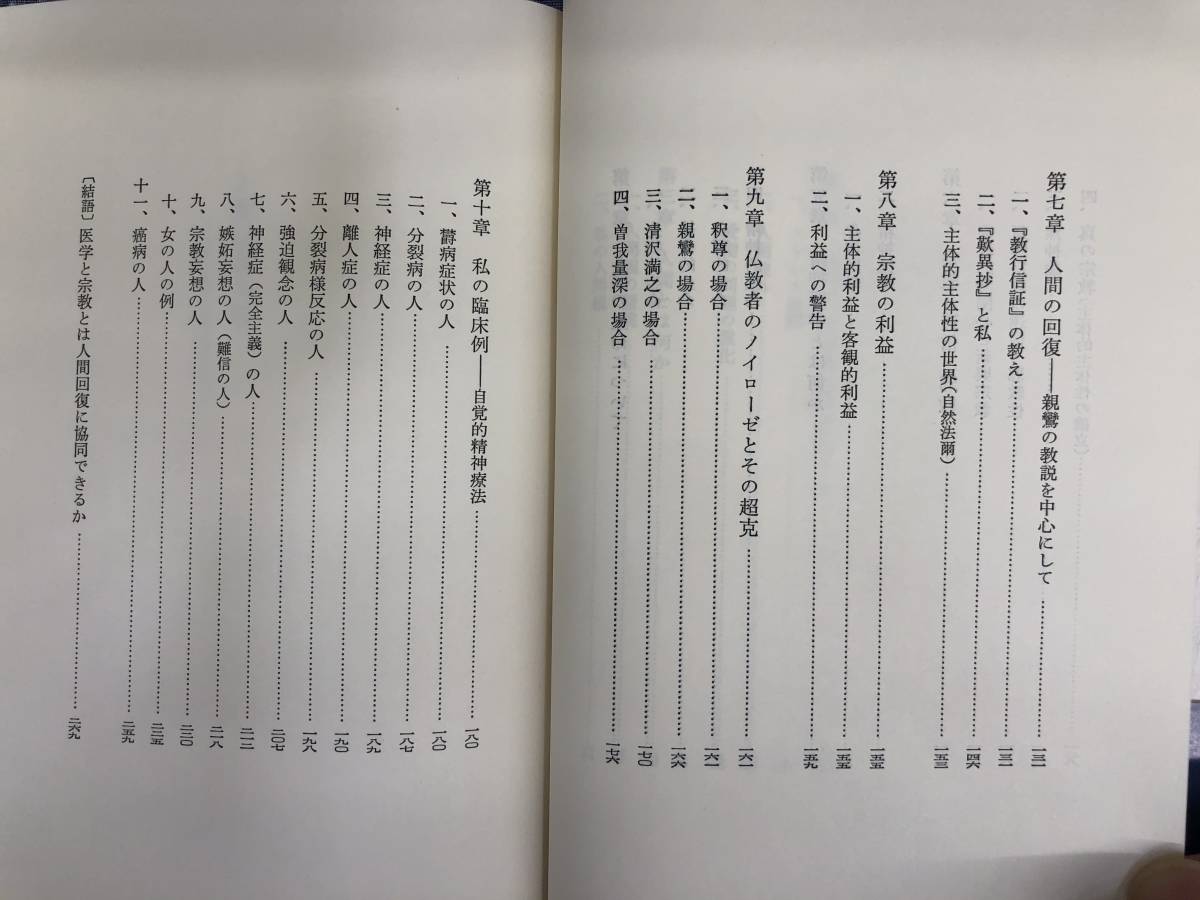 第七章　人間の回復——親鸞の教説を中心にして……一三一
一、『教行信証』の教え……一三一
二、『歎異抄』と私……一四六
三、主体的主体性の世界（自然法爾）……一五三
第八章　宗教の利益……一五五
一、主体的利益と客観的利益……一五五
二、利益への警告……一五九
第九章　仏教者のノイローゼとその超克……一六一
一、釈尊の場合……一六一
二、親鸞の場合……一六六
三、清沢満之の場合……一七〇
四、曽我量深の場合……一七六
第十章　私の臨床例——自覚的精神療法……一八〇
一、欝病症状の人……一八〇
二、分裂病の人……一八七
三、神経症の人……一八九
四、離人症の人……一九〇
五、分裂病様反応の人……一九八
六、強迫観念の人……二〇七
七、神経症（完全主義）の人……二一二
八、嫉妬妄想の人（難信の人）……二一八
九、宗教妄想の人……二三〇
十、女の人の例……二三五
十一、癌病の人……二五九
〔結語〕医学と宗教とは人間回復に協同できるか……二六九